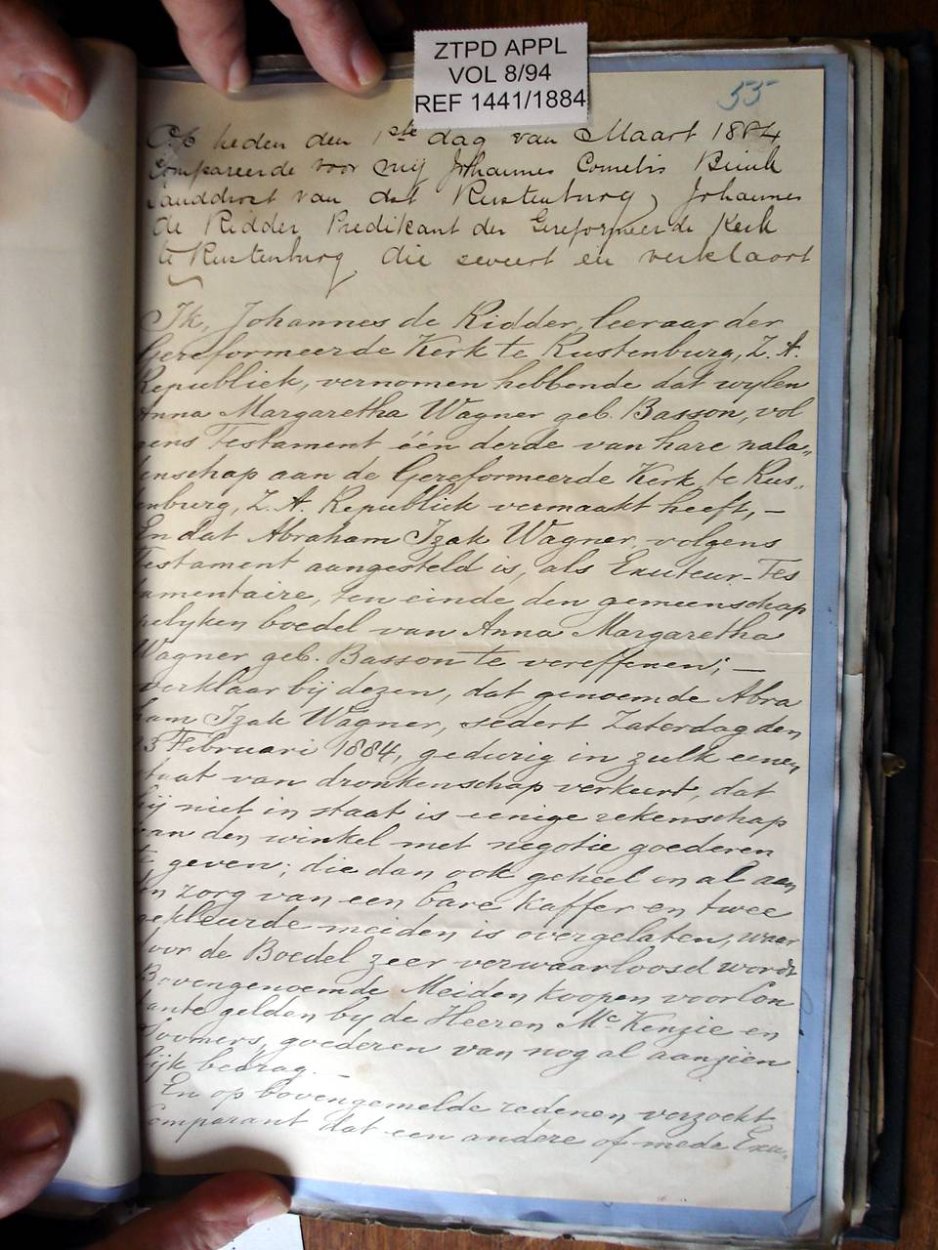 ZTPD APPL
VOL 8/94
REF 1441/1884
55
Op heden den 1ste dag van Maart 1884
Compareerde voor mij Johannes Cornelis Brink
Landdrost van dist Rustenburg, Johannes
de Ridder Predikant der Gereformeerde Kerk
te Rustenburg die sweert en verklaart
Ik, Johannes de Ridder, leeraar der
Gereformeerde Kerk te Rustenburg, Z. A.
Republiek, vernomen hebbende dat wylen
Anna Margaretha Wagner geb. Basson, vol
gens Testament één derde van hare nala„
enschap aan de Gereformeerde Kerk te Rus„
enburg, Z. A. Republiek vermaakt heeft, —
En dat Abraham Izak Wagner, volgens
Testament aangesteld is, als Exuteur-Tes
tamentaire, ten einde den gemeenschap
pelyken boedel van Anna Margaretha
Wagner geb. Basson te vereffenen; —
verklaar bij dezen, dat genoemde Abra
ham Izak Wagner, sedert Zaterdag den
23 Februari 1884, gedurig in zulk eenen
staat van dronkenschap verkeert, dat
hij niet in staat is eenige rekenschap
van den winkel met negotie goederen
te geven; die dan ook geheel en al aan
en zorg van een bare Kaffer en twee
gekleurde meiden is overgelaten, waar
door de Boedel zeer verwaarloosd wordt
Bovengenoemde Meiden koopen voor Con
tante gelden by de Heeren Mc Kenzie en
goederen van nog al aanzien
lijk bedrag. —
En op bovengemelde redenen verzoekt
Comparant dat een andere of mede Exu„